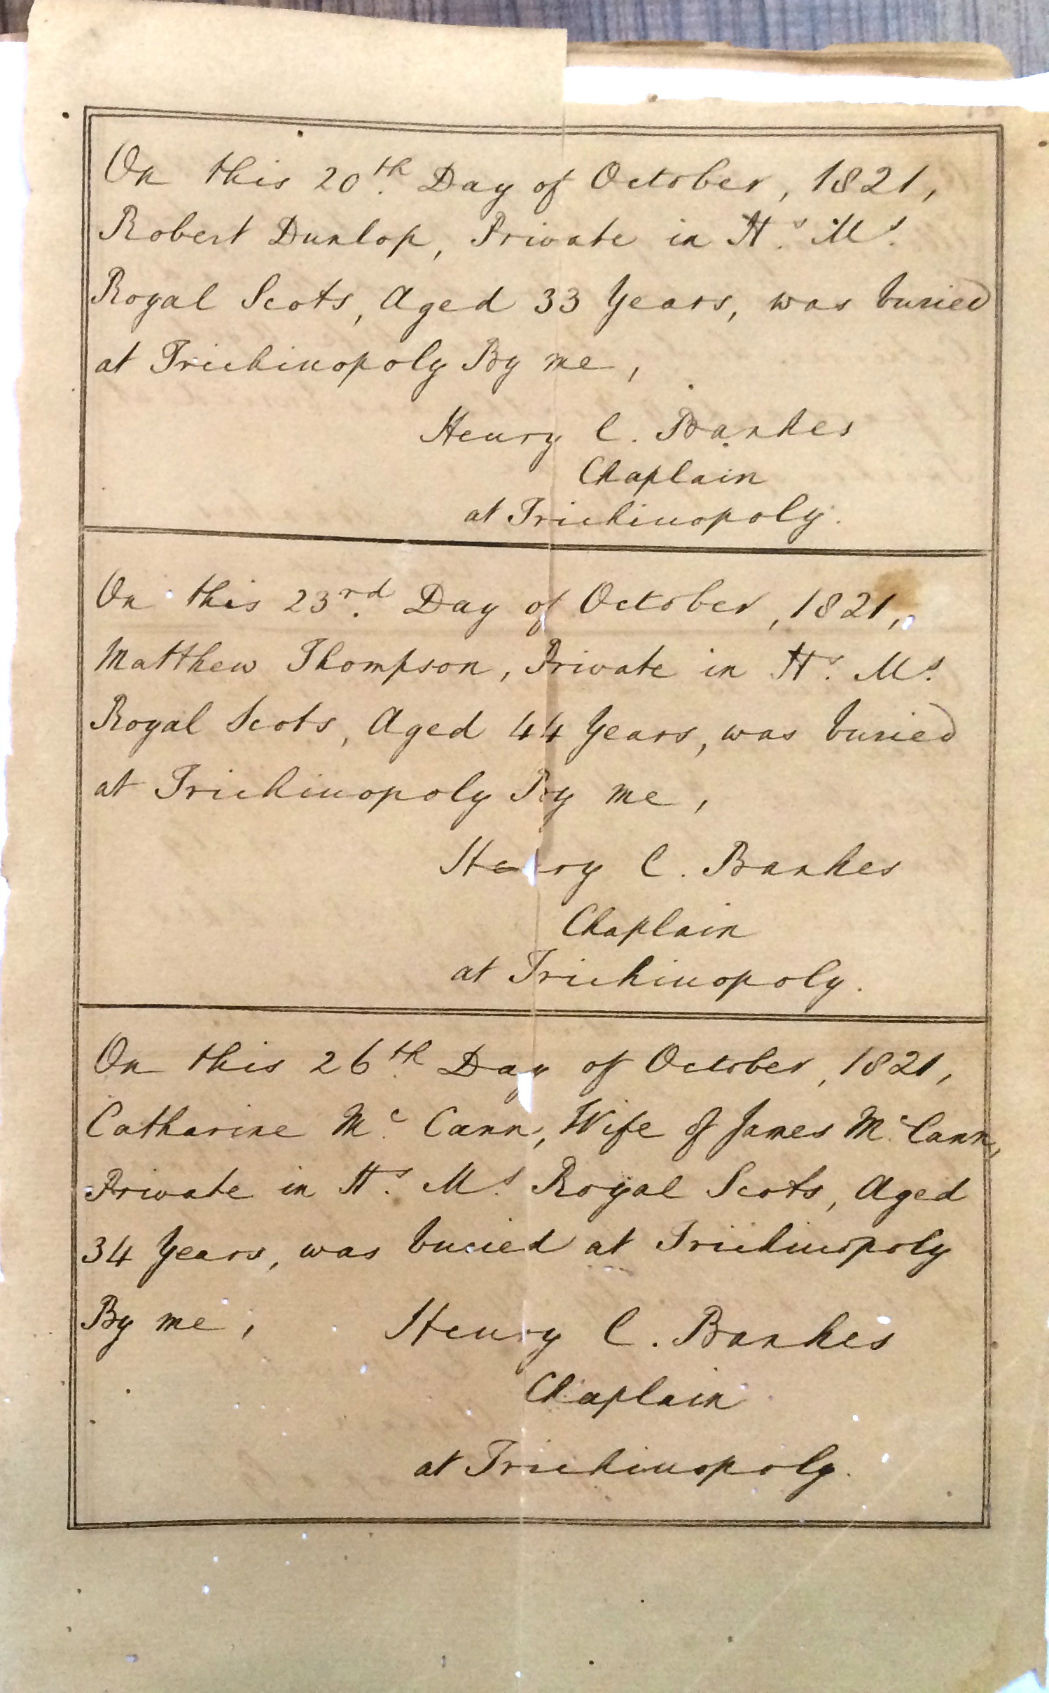 On this 20th Day of October, 1821,
Robert Dunlop, Private in H.s M.s
Royal Scots, Aged 33 Years, was buried
at Trichinopoly By me,
Henry C. Bankes
Chaplain
at Trichinopoly.
On this 23rd Day of October, 1821,
Matthew Thompson, Private in H.s M.s
Royal Scots, Aged 44 Years, was buried
at Trichinopoly By me,
Henry C. Bankes
Chaplain
at Trichinopoly.
On this 26th Day of October, 1821,
Catharine Mc. Cann, Wife of James Mc. Cann,
Private in H.s M.s Royal Scots, Aged
34 Years, was buried at Trichinopoly
By me, Henry C. Bankes
Chaplain
at Trichinopoly.